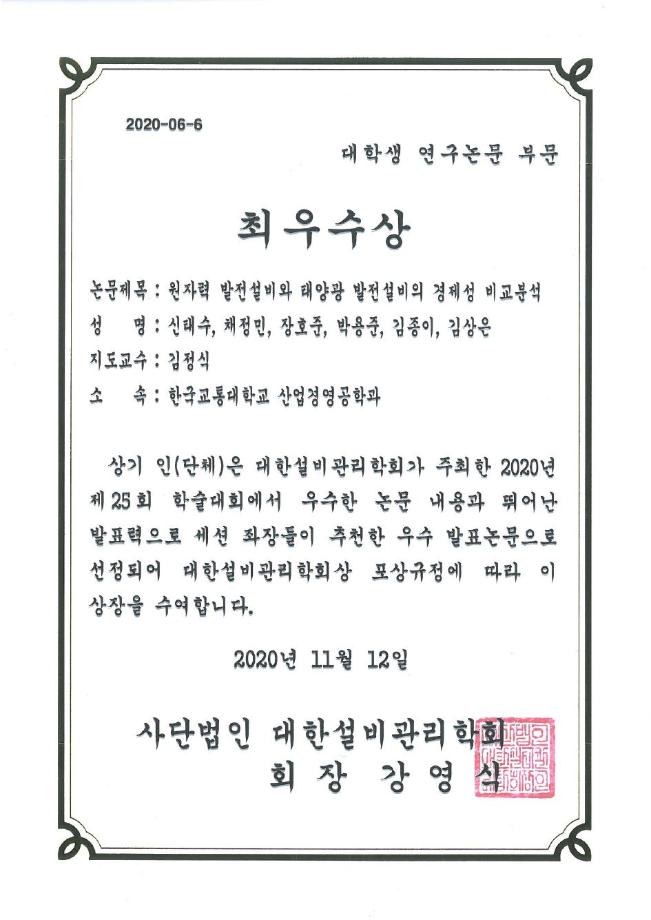 2020-06-6
대학생 연구논문 부문
최우수상
논문제목 : 원자력 발전설비와 태양광 발전설비의 경제성 비교분석
성 명 : 신태수, 채정민, 장호준, 박용준, 김종이, 김상은
지도교수 : 김정식
소 속 : 한국교통대학교 산업경영공학과
상기 인(단체)은 대한설비관리학회가 주최한 2020년
제25회 학술대회에서 우수한 논문 내용과 뛰어난
발표력으로 세션 좌장들이 추천한 우수 발표논문으로
선정되어 대한설비관리학회상 포상규정에 따라 이
상장을 수여합니다.
2020년 11월 12일
사단법인 대한설비관리학회
회장 강영식